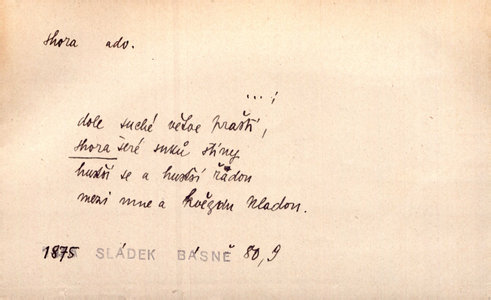 shora adv.
...;
dole suché větve praští,
shora šeré suků stíny
hustší se a hustší řadou
mezi mne a hvězdu kladou.
1875 SLÁDEK BÁSNĚ 80,9